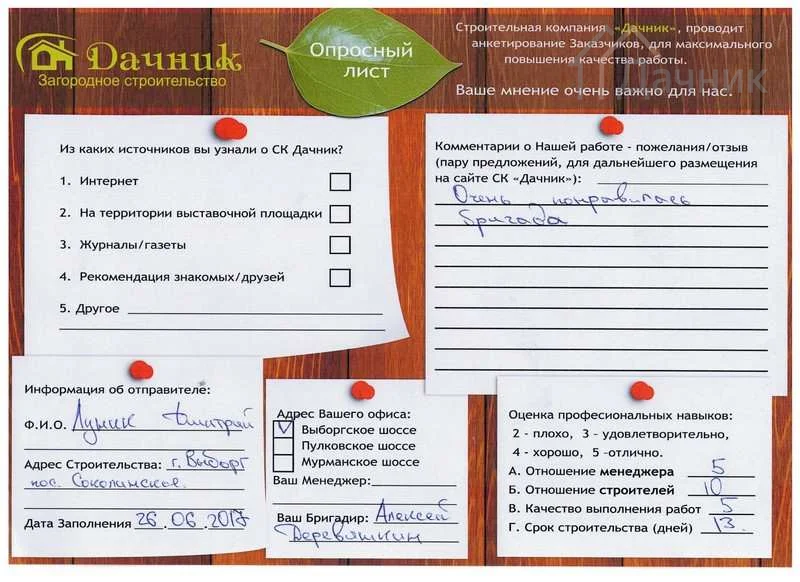 Дачник
Загородное строительство
Опросный
лист
Строительная компания «Дачник», проводит
анкетирование Заказчиков, для максимального
повышения качества работы.
Ваше мнение очень важно для нас.
Дачник
Из каких источников вы узнали о СК Дачник?
1. Интернет
2. На территории выставочной площадки
3. Журналы/газеты
4. Рекомендация знакомых/друзей
5. Другое
Комментарии о Нашей работе - пожелания/отзыв
(пару предложений, для дальнейшего размещения
на сайте СК «Дачник»):
Очень понравилась
бригада
Информация об отправителе:
Ф.И.О. Луник Дмитрий
Адрес Строительства: г. Выборг
пос. Соколинское.
Дата Заполнения 26.06.2017
Адрес Вашего офиса:
Выборгское шоссе
Пулковское шоссе
Мурманское шоссе
Ваш Менеджер:
Ваш Бригадир: Алексей
Деревяшкин
Оценка професиональных навыков:
2 - плохо, 3 - удовлетворительно,
4 - хорошо, 5 -отлично.
А. Отношение менеджера 5
Б. Отношение строителей 10
В. Качество выполнения работ 5
Г. Срок строительства (дней) 13.